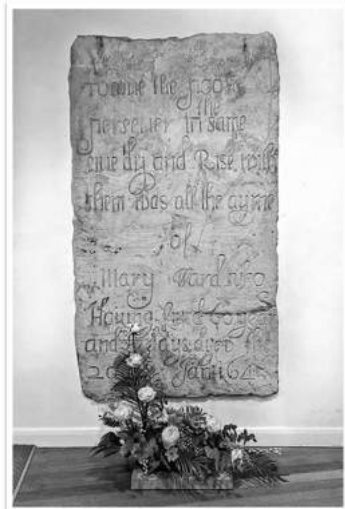 To love the poore
the
persever in same
live dy and Rise with
them Was all the ayme
of
Mary Ward who
Having lived 60 years
and 8 days dyed the
20 Jan 1645